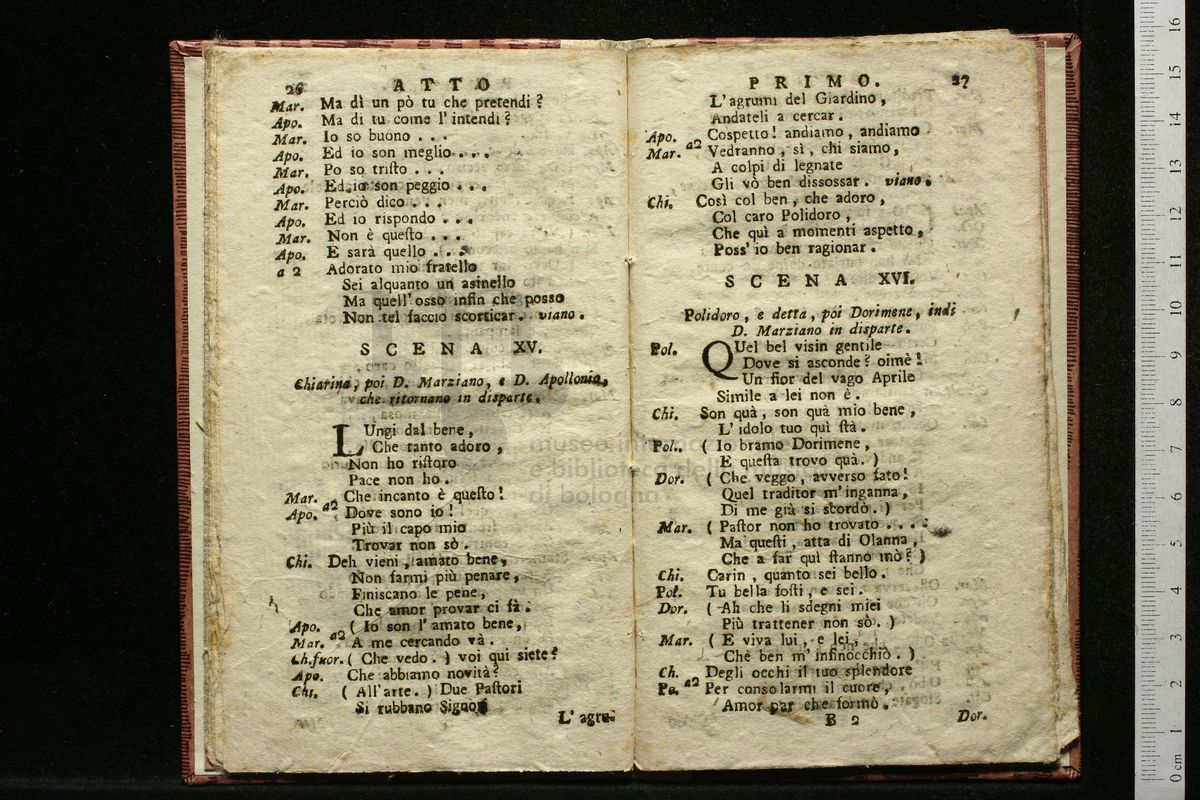 26 ATTO
Mar. Ma dì un pò tu che pretendi?
Apo. Ma di tu come l'intendi?
Mar. Io so buono . . .
Apo. Ed io son meglio . . .
Mar. Po so tristo . . .
Apo. Ed io son peggio . . .
Mar. Perciò dico . . .
Apo. Ed io rispondo . . .
Mar. Non è questo . . .
Apo. E sarà quello . . .
a 2 Adorato mio fratello
Sei alquanto un asinello
Ma quell'osso infin che posso
Non tel faccio scorticar. viano.
SCENA XV.
Chiarina, poi D. Marziano, e D. Apollonia,
che ritornano in disparte.
LUngi dal bene,
Che tanto adoro,
Non ho ristoro
Pace non ho.
Mar. Che incanto è questo!
Apo. a2 Dove sono io!
Più il capo mio
Trovar non sò.
Chi. Deh vieni, amato bene,
Non farmi più penare,
Finiscano le pene,
Che amor provar ci fà.
Apo. ( Io son l'amato bene,
Mar. a2 A me cercando và.
Ch.fuor. ( Che vedo. ) voi qui siete?
Apo. Che abbiamo novità?
Chi. ( All'arte. ) Due Pastori
Si rubbano Signor
L'agru-
PRIMO. 27
L'agrumi del Giardino,
Andateli a cercar.
Apo. Cospetto! andiamo, andiamo
Mar. a2 Vedranno, sì, chi siamo,
A colpi di legnate
Gli vò ben dissossar. viano.
Chi. Così col ben, che adoro,
Col caro Polidoro,
Che quì a momenti aspetto,
Poss'io ben ragionar.
SCENA XVI.
Polidoro, e detta, poi Dorimene, indi
D. Marziano in disparte.
Pol. QUel bel visin gentile
Dove si asconde? oimè!
Un fior del vago Aprile
Simile a lei non è.
Chi. Son quà, son quà mio bene,
L'idolo tuo quì stà.
Pol.. ( Io bramo Dorimene,
E questa trovo quà. )
Dor. ( Che veggo, avverso fato!
Quel traditor m'inganna,
Di me già si scordò. )
Mar. ( Pastor non ho trovato . . . .
Ma questi, atta di Olanna,
Che a far quì stanno mò? )
Chi. Carin, quanto sei bello.
Pol. Tu bella fosti, e sei.
Dor. ( Ah che li sdegni miei
Più trattener non sò. )
Mar. ( E viva lui, e lei,
Che ben m'infinocchiò. )
Ch. Degli occhi il tuo splendore
Po. a2 Per consolarmi il cuore,
Amor par che formò.
B 2 Dor.
museo
e biblioteca della musica
di bologna